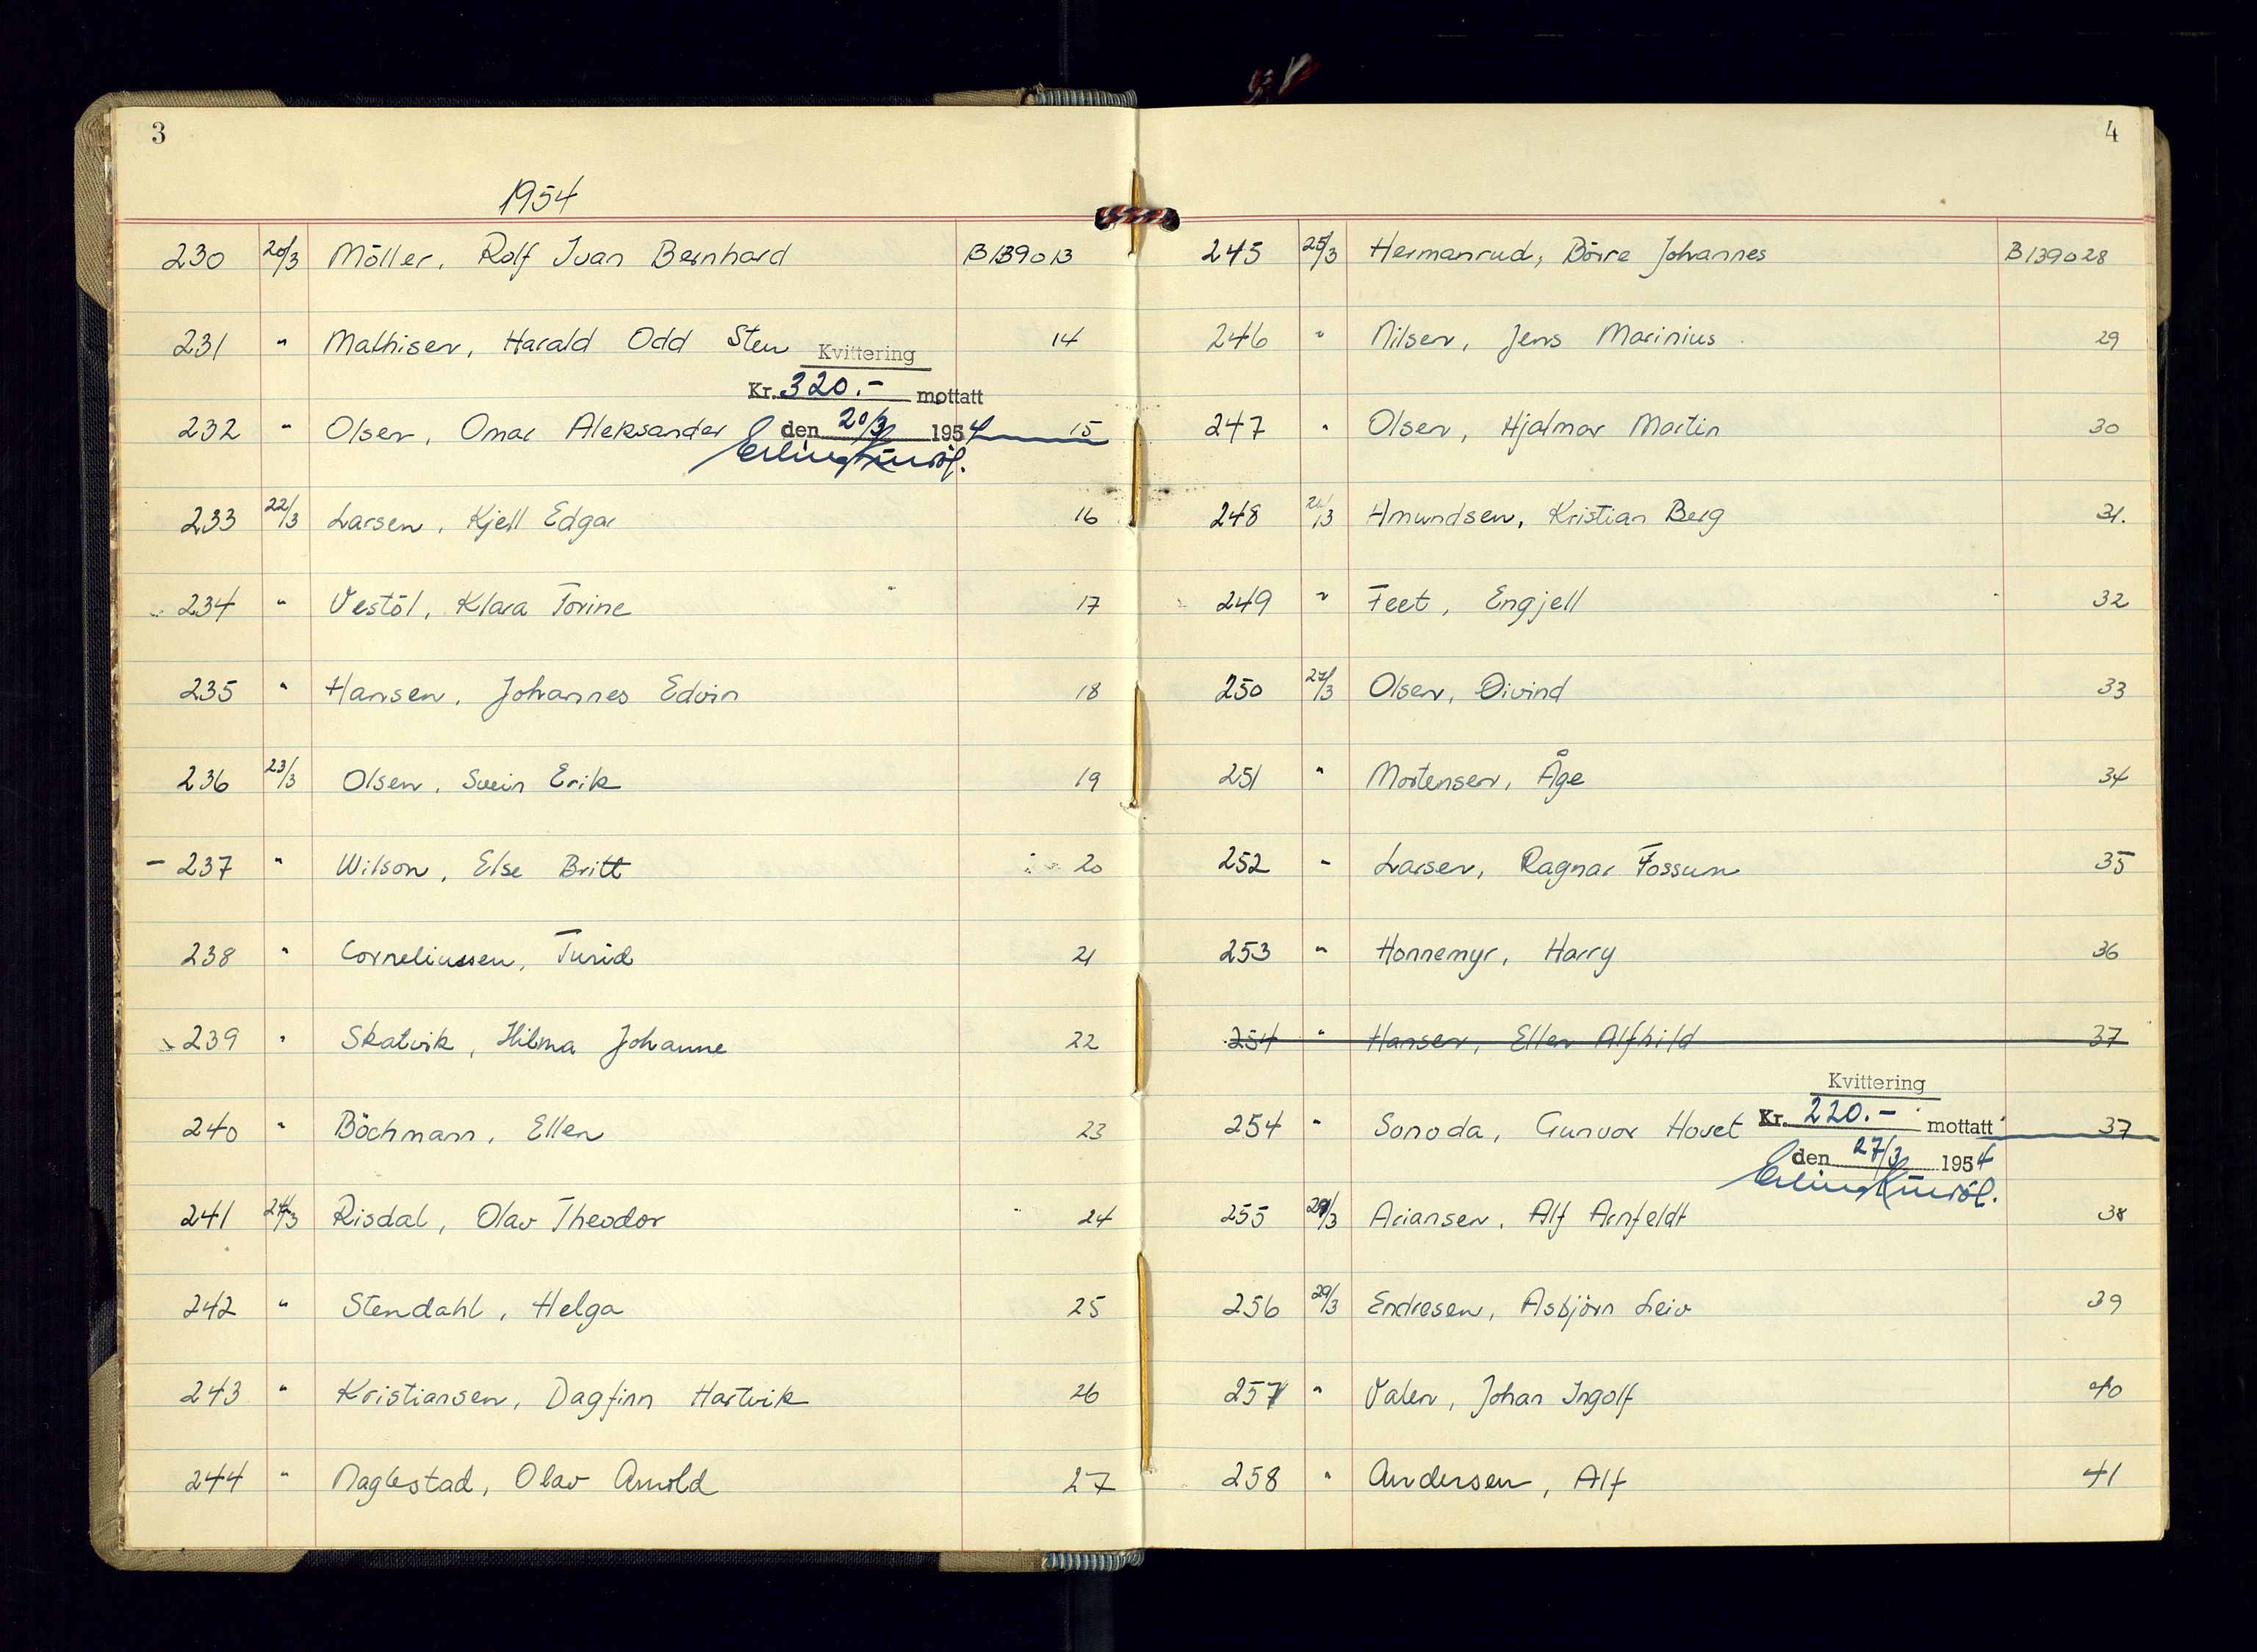 3
1954
230 20/3 Möller, Rolf Ivan Bernhard B139013
231 " Mathisen, Harald Odd Sten 14
Kvittering
Kr. 320.- mottatt
232 " Olsen, Omar Aleksander 15
den 20/3 1954
233 22/3 Larsen, Kjell Edgar 16
234 " Vestöl, Klara Torine 17
235 " Hansen, Johannes Edvin 18
236 23/3 Olsen, Svein Erik 19
- 237 " Wilson, Else Britt 20
238 " Corneliussen, Turid 21
239 " Skatvik, Hilma Johanne 22
240 " Böchmann, Ellen 23
241 24/3 Risdal, Olav Theodor 24
242 " Stendahl, Helga 25
243 " Kristiansen, Dagfinn Hartvik 26
244 " Naglestad, Olav Arnold 27
4
245 25/3 Hermanrud, Börre Johannes B139028
246 " Nilsen, Jens Marinius 29
247 " Olsen, Hjalmar Martin 30
248 /3 Amundsen, Kristian Berg 31.
249 " Feet, Engjell 32
250 27/3 Olsen, Øivind 33
251 " Mortensen, Åge 34
252 " Larsen, Ragnar Fossum 35
253 " Honnemyr, Harry 36
254 " Hansen, Ellen Alfhild 37
Kvittering
254 " Sonoda, Gunvor Hovet Kr. 220.- mottatt 37
den 27/3 1954
255 /3 Ariansen, Alf Arnfeldt 38
256 29/3 Endresen, Asbjörn Leiv 39
257 " Valen, Johan Ingolf 40
258 " Andersen, Alf 41